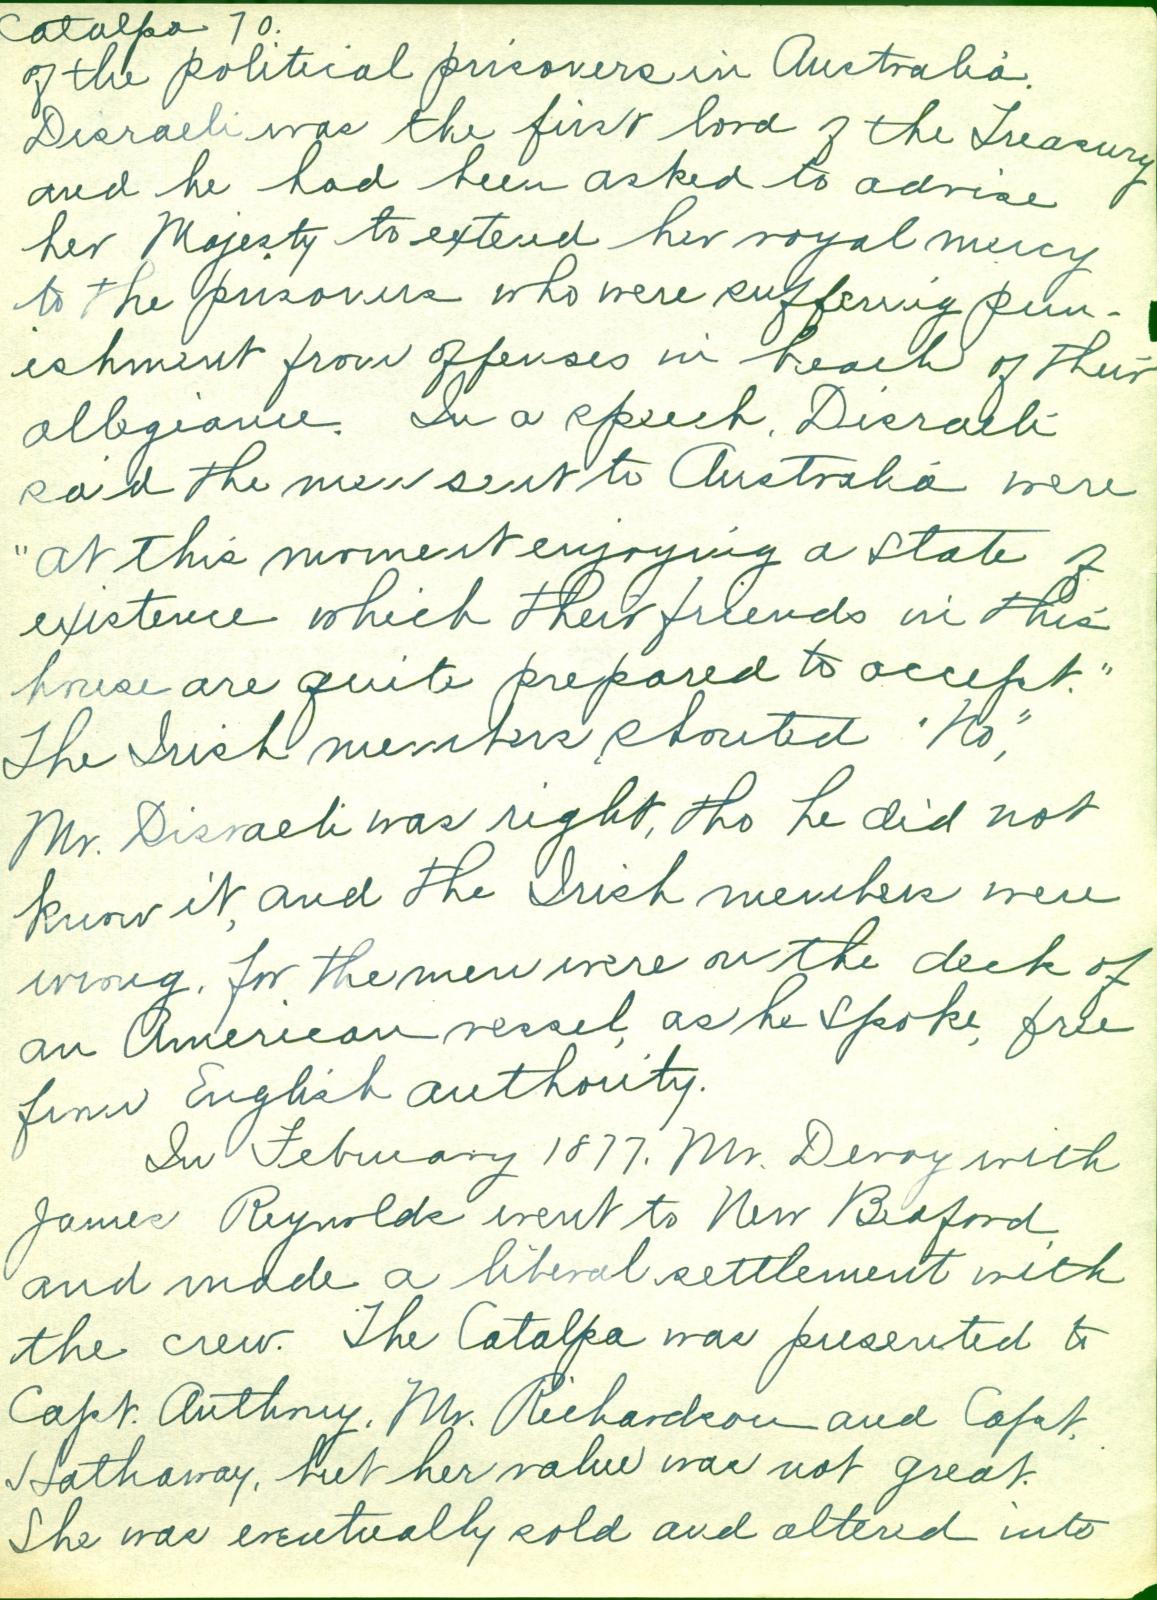 Catalpa 70.
of the political prisoners in Australia.
Disraeli was the first lord of the Treasury
and he had been asked to advise
her Majesty to extend her royal mercy
to the prisoners who were suffering pun-
ishment from offenses in breach of their
allegiance. In a speech, Disraeli
said the men sent to Australia were
"at this moment enjoying a state of
existence which their friends in this
house are quite prepared to accept."
The Irish members shouted "No,"
Mr. Disraeli was right, tho he did not
know it, and the Irish members were
wrong, for the men were on the deck of
an American vessel, as he spoke, free
from English authority.
In February 1877. Mr. Devoy with
James Reynolds went to New Bedford
and made a liberal settlement with
the crew. The Catalpa was presented to
Capt. Anthony, Mr. Richardson and Capt.
Hathaway, but her value was not great.
She was eventually sold and altered into